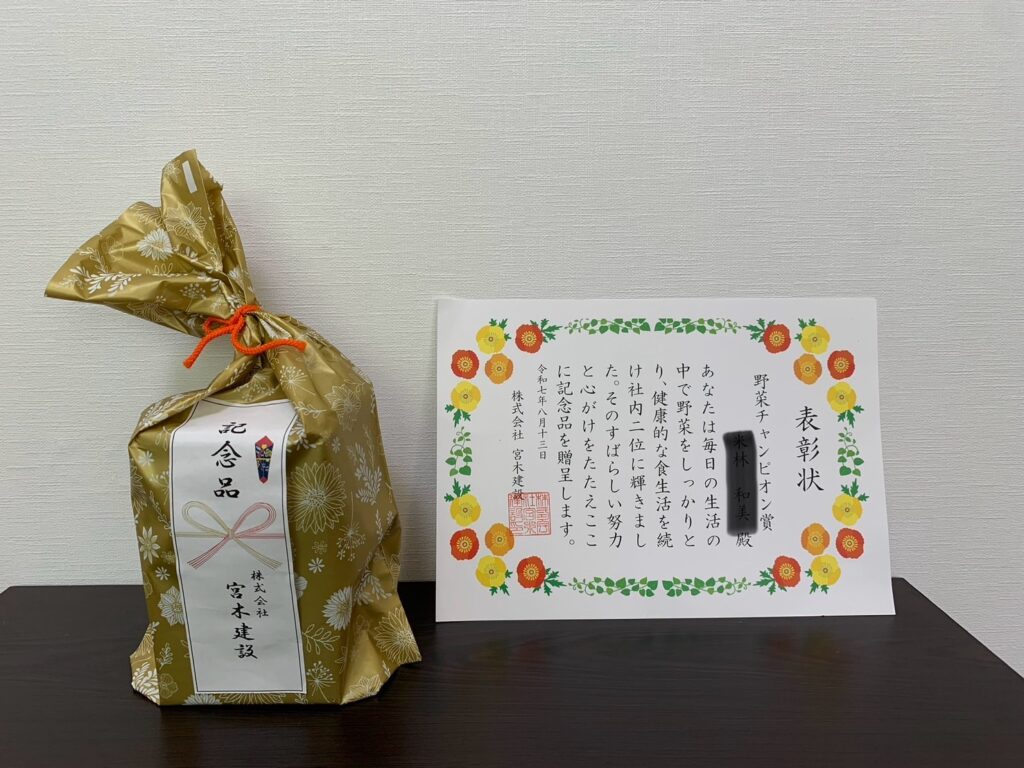 記念品
株式会社
宮木建設
表彰状
野菜チャンピオン賞
殿
あなたは毎日の生活の
中で野菜をしっかりと
り、健康的な食生活を続
け社内二位に輝きまし
た。そのすばらしい努力
と心がけをたたえここ
に記念品を贈呈します。
令和七年八月十三日
株式会社 宮木建設